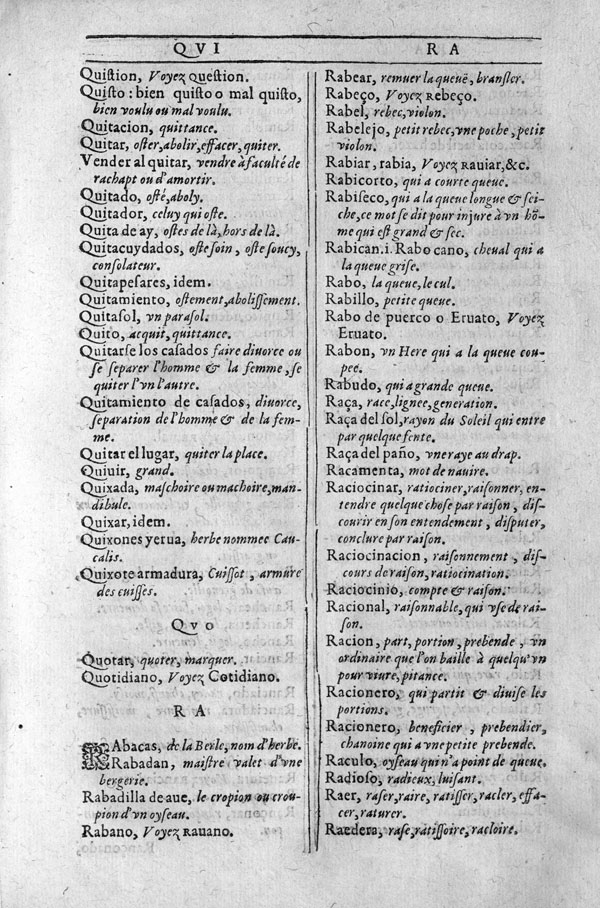 QVI
RA
Quistion, Voyez Question.
Quisto : bien quisto o mal quisto,
bien voulu ou mal voulu.
Quitacion, quittance.
Quitar, oster, abolir, effacer, quiter.
Vender al quitar, vendre à faculté de
rachapt ou d'amortir.
Quitado, osté, aboly.
Quitador, celuy qui oste.
Quita de ay, ostes de là, hors de là.
Quitacuydados, oste soin, oste soucy,
consolateur.
Quitapesares, idem.
Quitamiento, ostement, abolissement.
Quitasol, vn parasol.
Quito, acquit, quittance.
Quitarse los casados faire diuorce ou
se separer l'homme & la femme, se
quiter l'vn l'autre.
Quitamiento de casados, diuorce,
separation de l'homme & de la fem-
me.
Quitar el lugar, quiter la place.
Quiuir, grand.
Quixada, maschoire ou machoire, man-
dibule.
Quixar, idem.
Quixones yerua, herbe nommee Cau-
calis.
Quixote armadura, Cuissot, armure
des cuisses.
QVO
Quotar, quoter, marquer.
Quotidiano, Voyez Cotidiano.
RA
RAbacas, de la Berle, nom d'herbe.
Rabadan, maistre valet d'vne
bergerie.
Rabadilla de aue, le cropion ou crou-
pion d'vn oyseau.
Rabano, Voyez Rauano.
Rabear, remuer la queuë, bransler.
Rabeço, Voyez Rebeço.
Rabel, rebec, violon.
Rabelejo, petit rebec, vne poche, petit
violon.
Rabiar, rabia, Voyez Rauiar, &c.
Rabicorto, qui a courte queue.
Rabiseco, qui a la queue longue & sei-
che, ce mot se dit pour injure à vn hõ-
me qui est grand & sec.
Rabican. i. Rabo cano, cheual qui a
la queue grise.
Rabo, la queue, le cul.
Rabillo, petite queue.
Rabo de puerco o Eruato, Voyez
Eruato.
Rabon, vn Here qui a la queue cou-
pee.
Rabudo, qui a grande queue.
Raça, race, lignee, generation.
Raça del sol, rayon du Soleil qui entre
par quelque fente.
Raça del paño, vne raye au drap.
Racamenta, mot de nauire.
Raciocinar, ratiociner, raisonner, en-
tendre quelque chose par raison, dis-
courir en son entendement, disputer,
conclure par raison.
Raciocinacion, raisonnement, dis-
cours de raison, ratiocination.
Raciocinio, compte & raison.
Racional, raisonnable, qui vse de rai-
son.
Racion, part, portion, prebende, vn
ordinaire que l'on baille à quelqu'vn
pour viure, pitance.
Racionero, qui partit & diuise les
portions.
Racionero, beneficier, prebendier,
chanoine qui a vne petite prebende.
Raculo, oyseau qui n'a point de queue.
Radioso, radieux, luisant.
Raer, raser, raire, ratisser, racler, effa-
cer, raturer.
Raedera, rase, ratissoire, racloire.